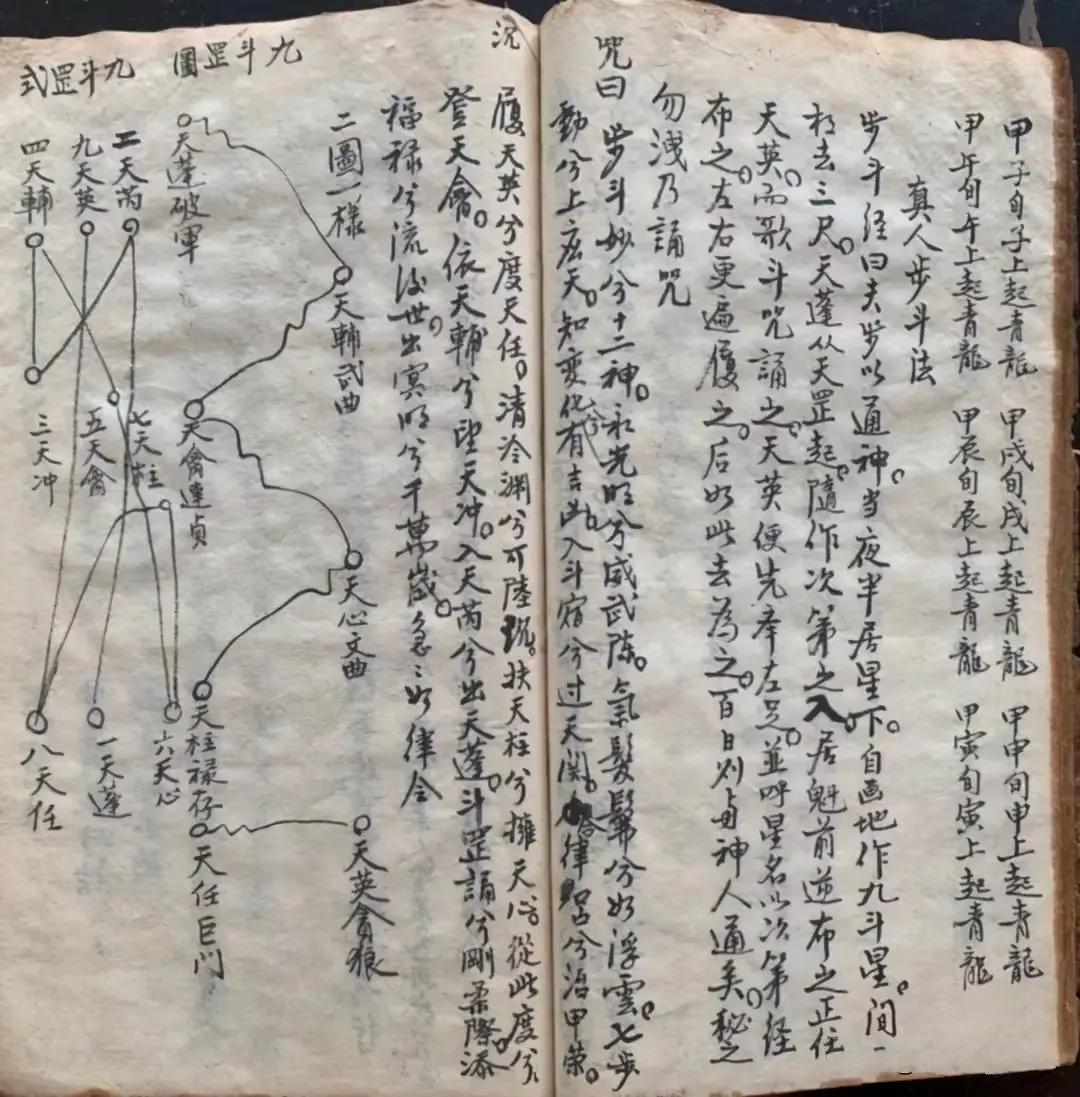 甲子旬子上起青龍 甲戌旬戌上起青龍 甲申旬申上起青龍
甲午旬午上起青龍 甲辰旬辰上起青龍 甲寅旬寅上起青龍
真人步斗法
步斗经曰夫步以通神。当夜半居星下。自画地作九斗星。间一
相去三尺。天蓬从天罡起。隨作次第之入。居魁前逆布之正住
天英。而歌斗咒誦之。天英便先举左足。並呼星名以次第经
布之。左右更遍履之。后如此去為之。百日则与神人通矣。秘之
勿洩乃誦咒
咒曰 步斗妙兮十二神。永光明兮威武陈。氣髮鬅兮如浮雲。七步
動兮上应天。知变化兮有吉凶。入斗宿兮过天関。合律吕兮治甲荣。
履天英兮度天任。清冷渊兮可陸沉。扶天柱兮擁天心。從此度兮
登天禽。依天輔兮望天冲。入天芮兮出天蓬。斗罡誦兮剛柔際。添
福禄兮流後世。出冥明兮千萬歲。急〻如律令
沉
二圖一様
九斗罡圖
天蓬破軍
天輔武曲
天禽連貞
天心文曲
天柱禄存
天任巨门
天英貪狼
九斗罡式
二天芮
九天英
四天輔
七天柱
五天禽
三天冲
六天心
一天蓬
八天任